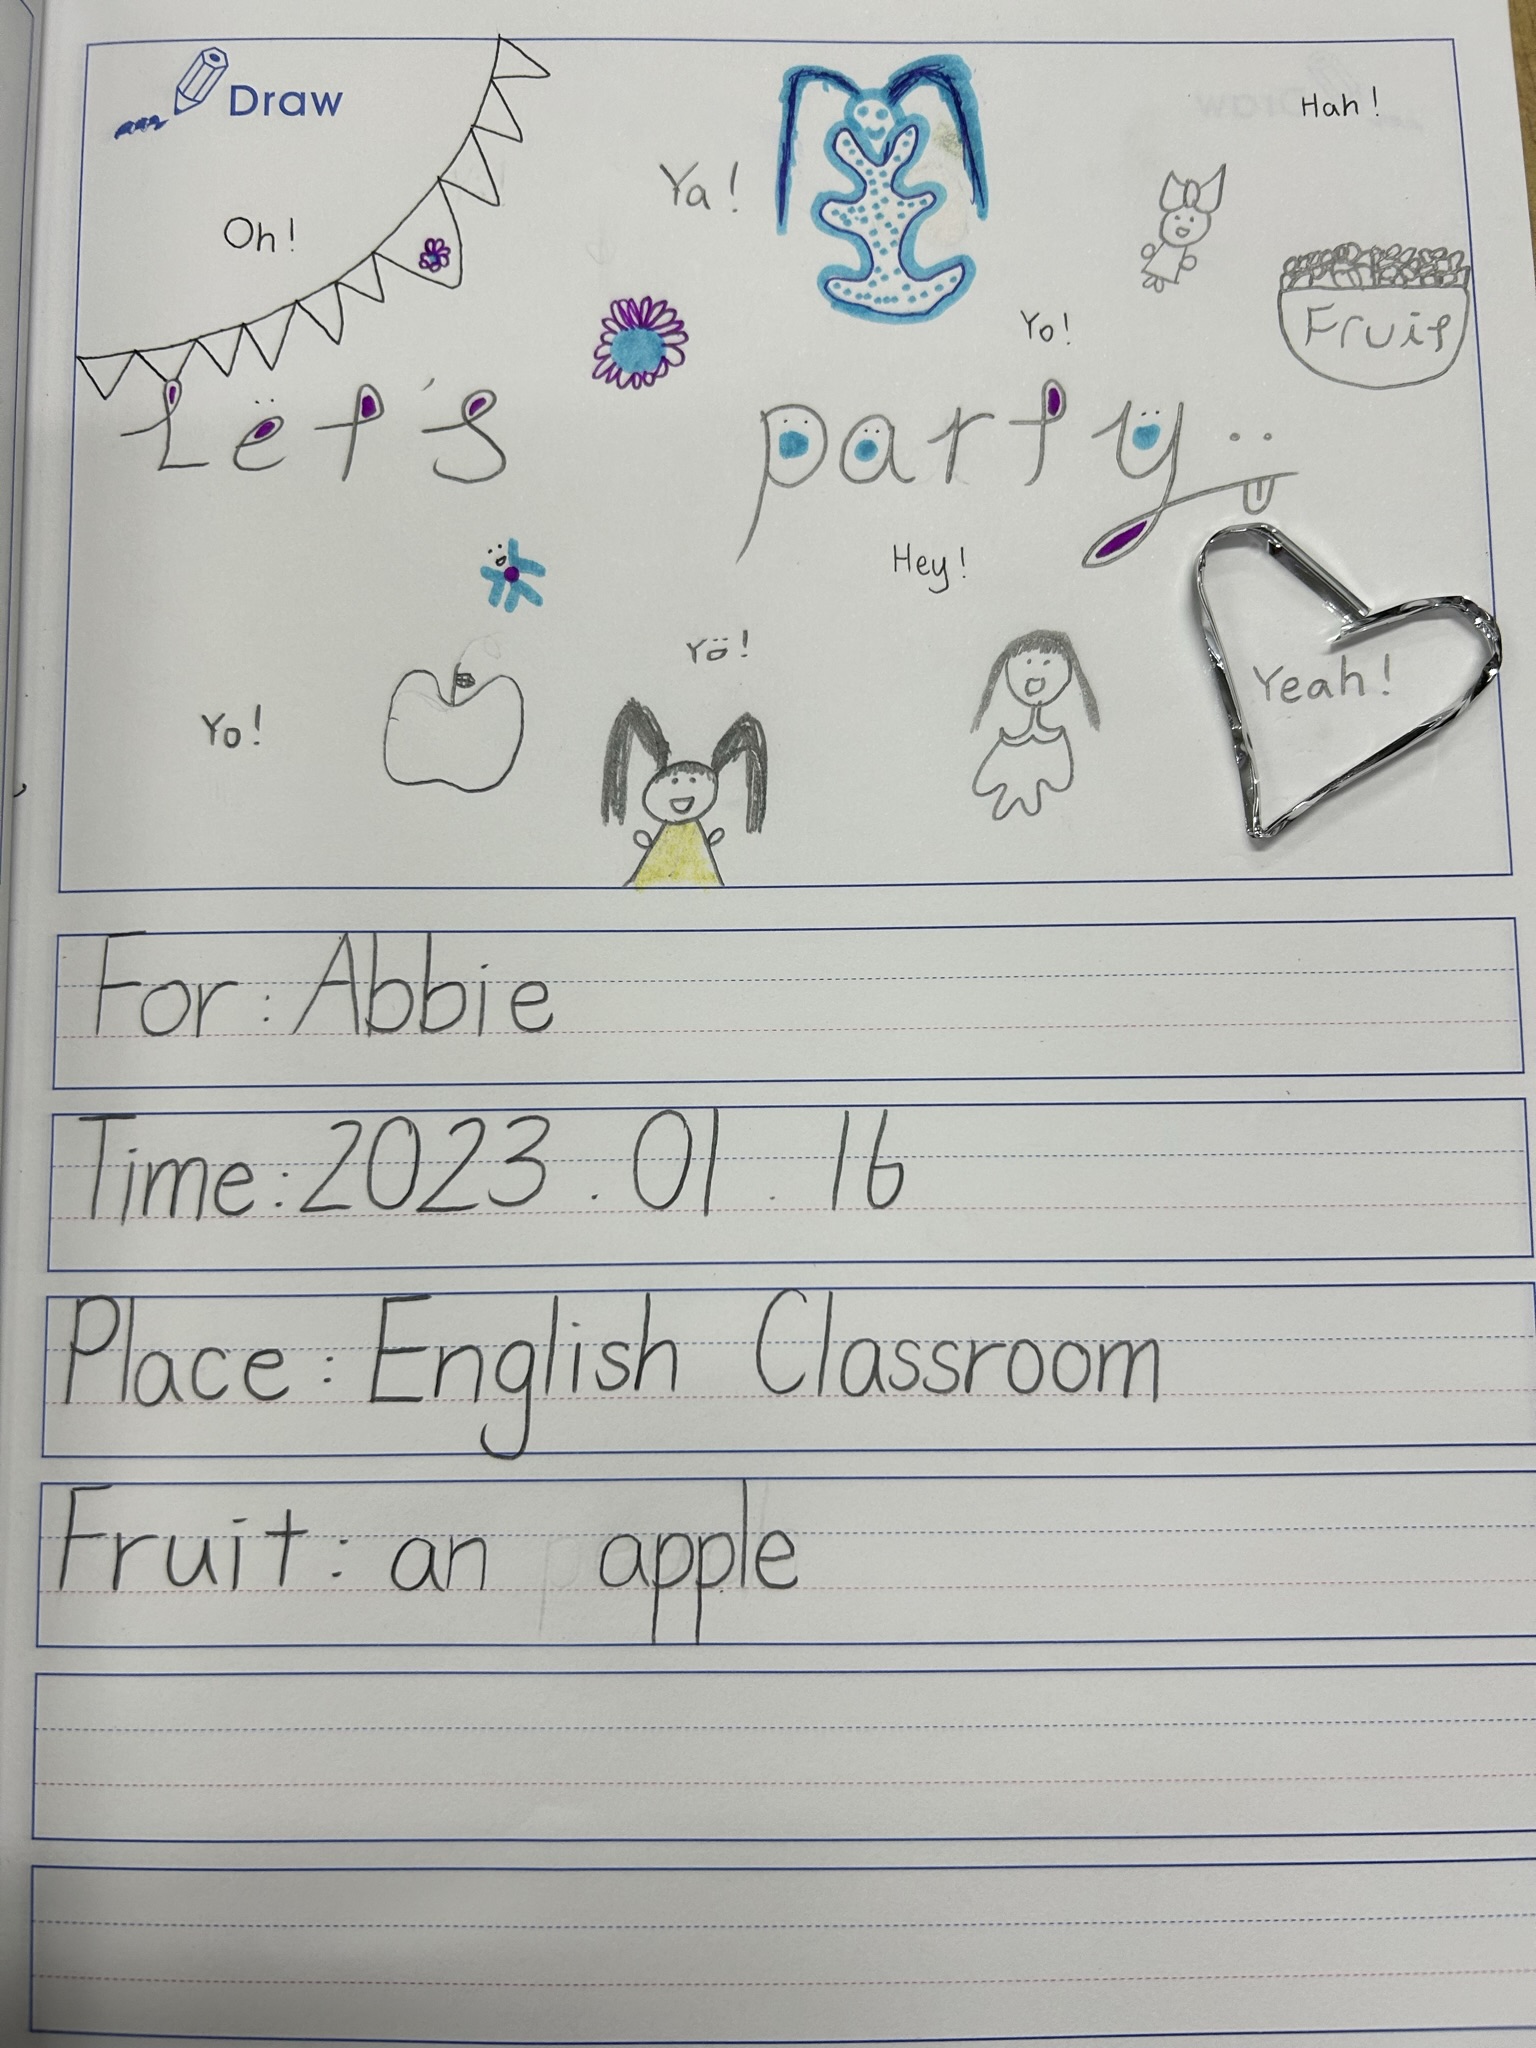 Draw
Hah!
Ya!
Oh!
Yo!
Fruit
Let's party
Hey!
Yo!
Yeah!
Yo!
For: Abbie
Time: 2023.01.16
Place: English Classroom
Fruit: an apple